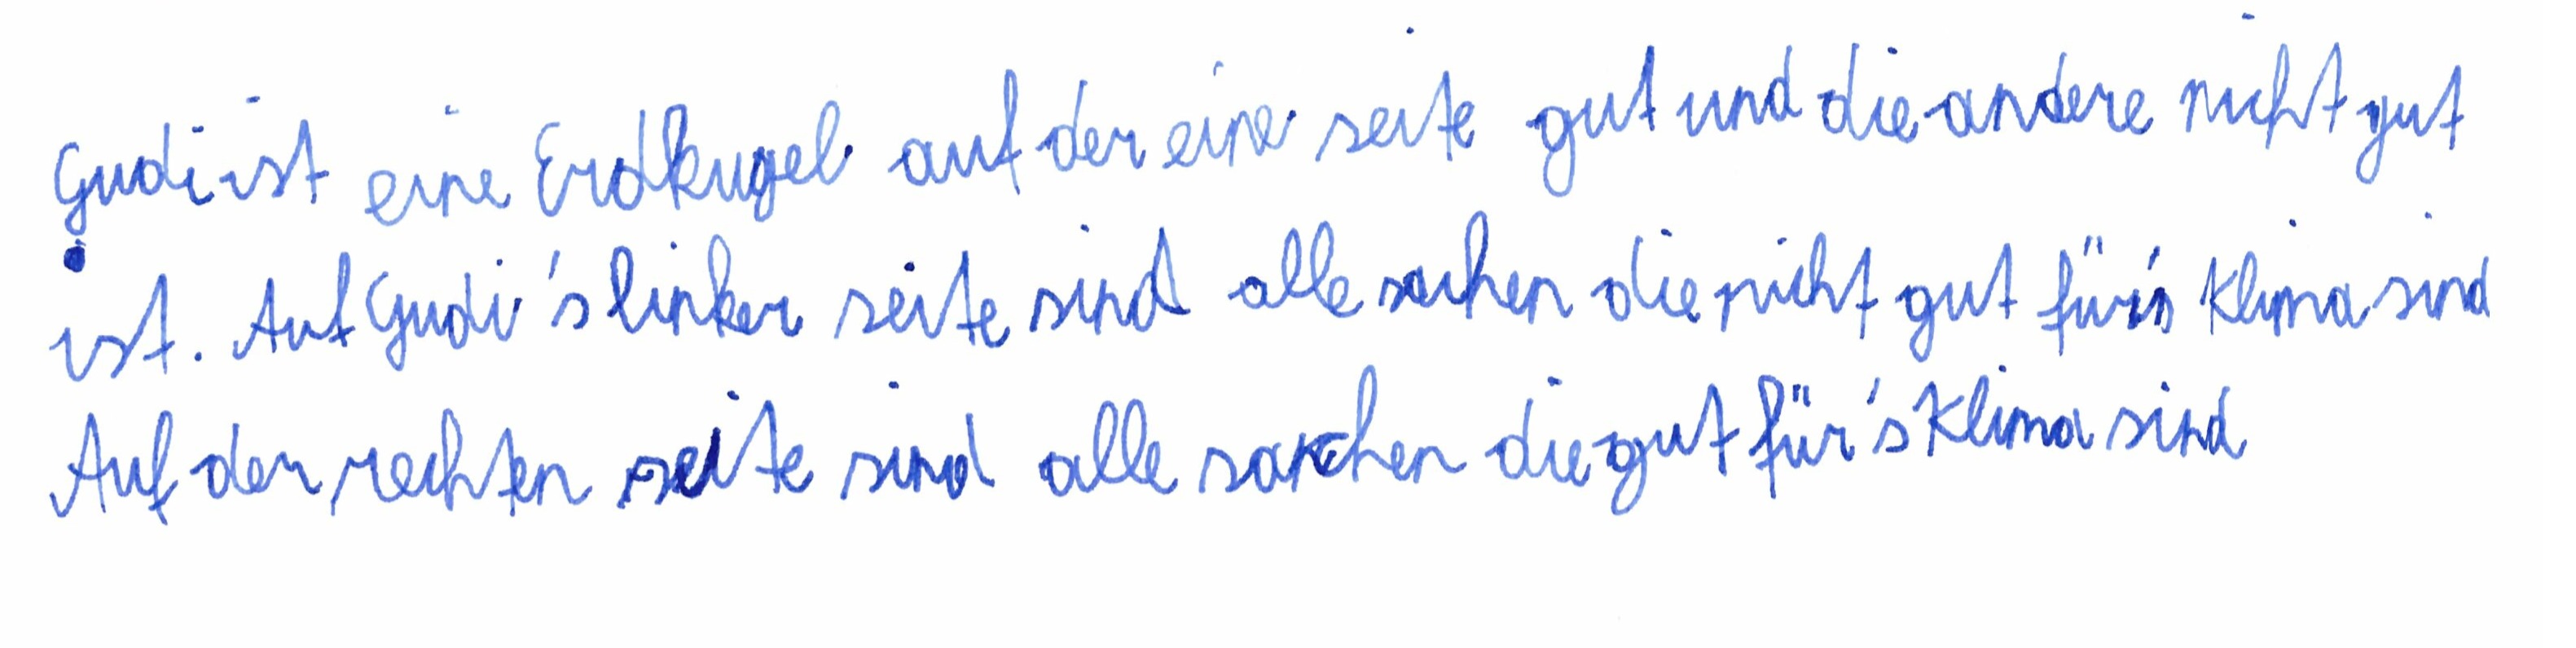 Gudi ist eine Erdkugel auf der eine seite gut und die andere nicht gut
ist. Auf Gudi's linker seite sind alle sachen die nicht gut für's Klima sind
Auf der rechten seite sind alle sachen die gut für's Klima sind